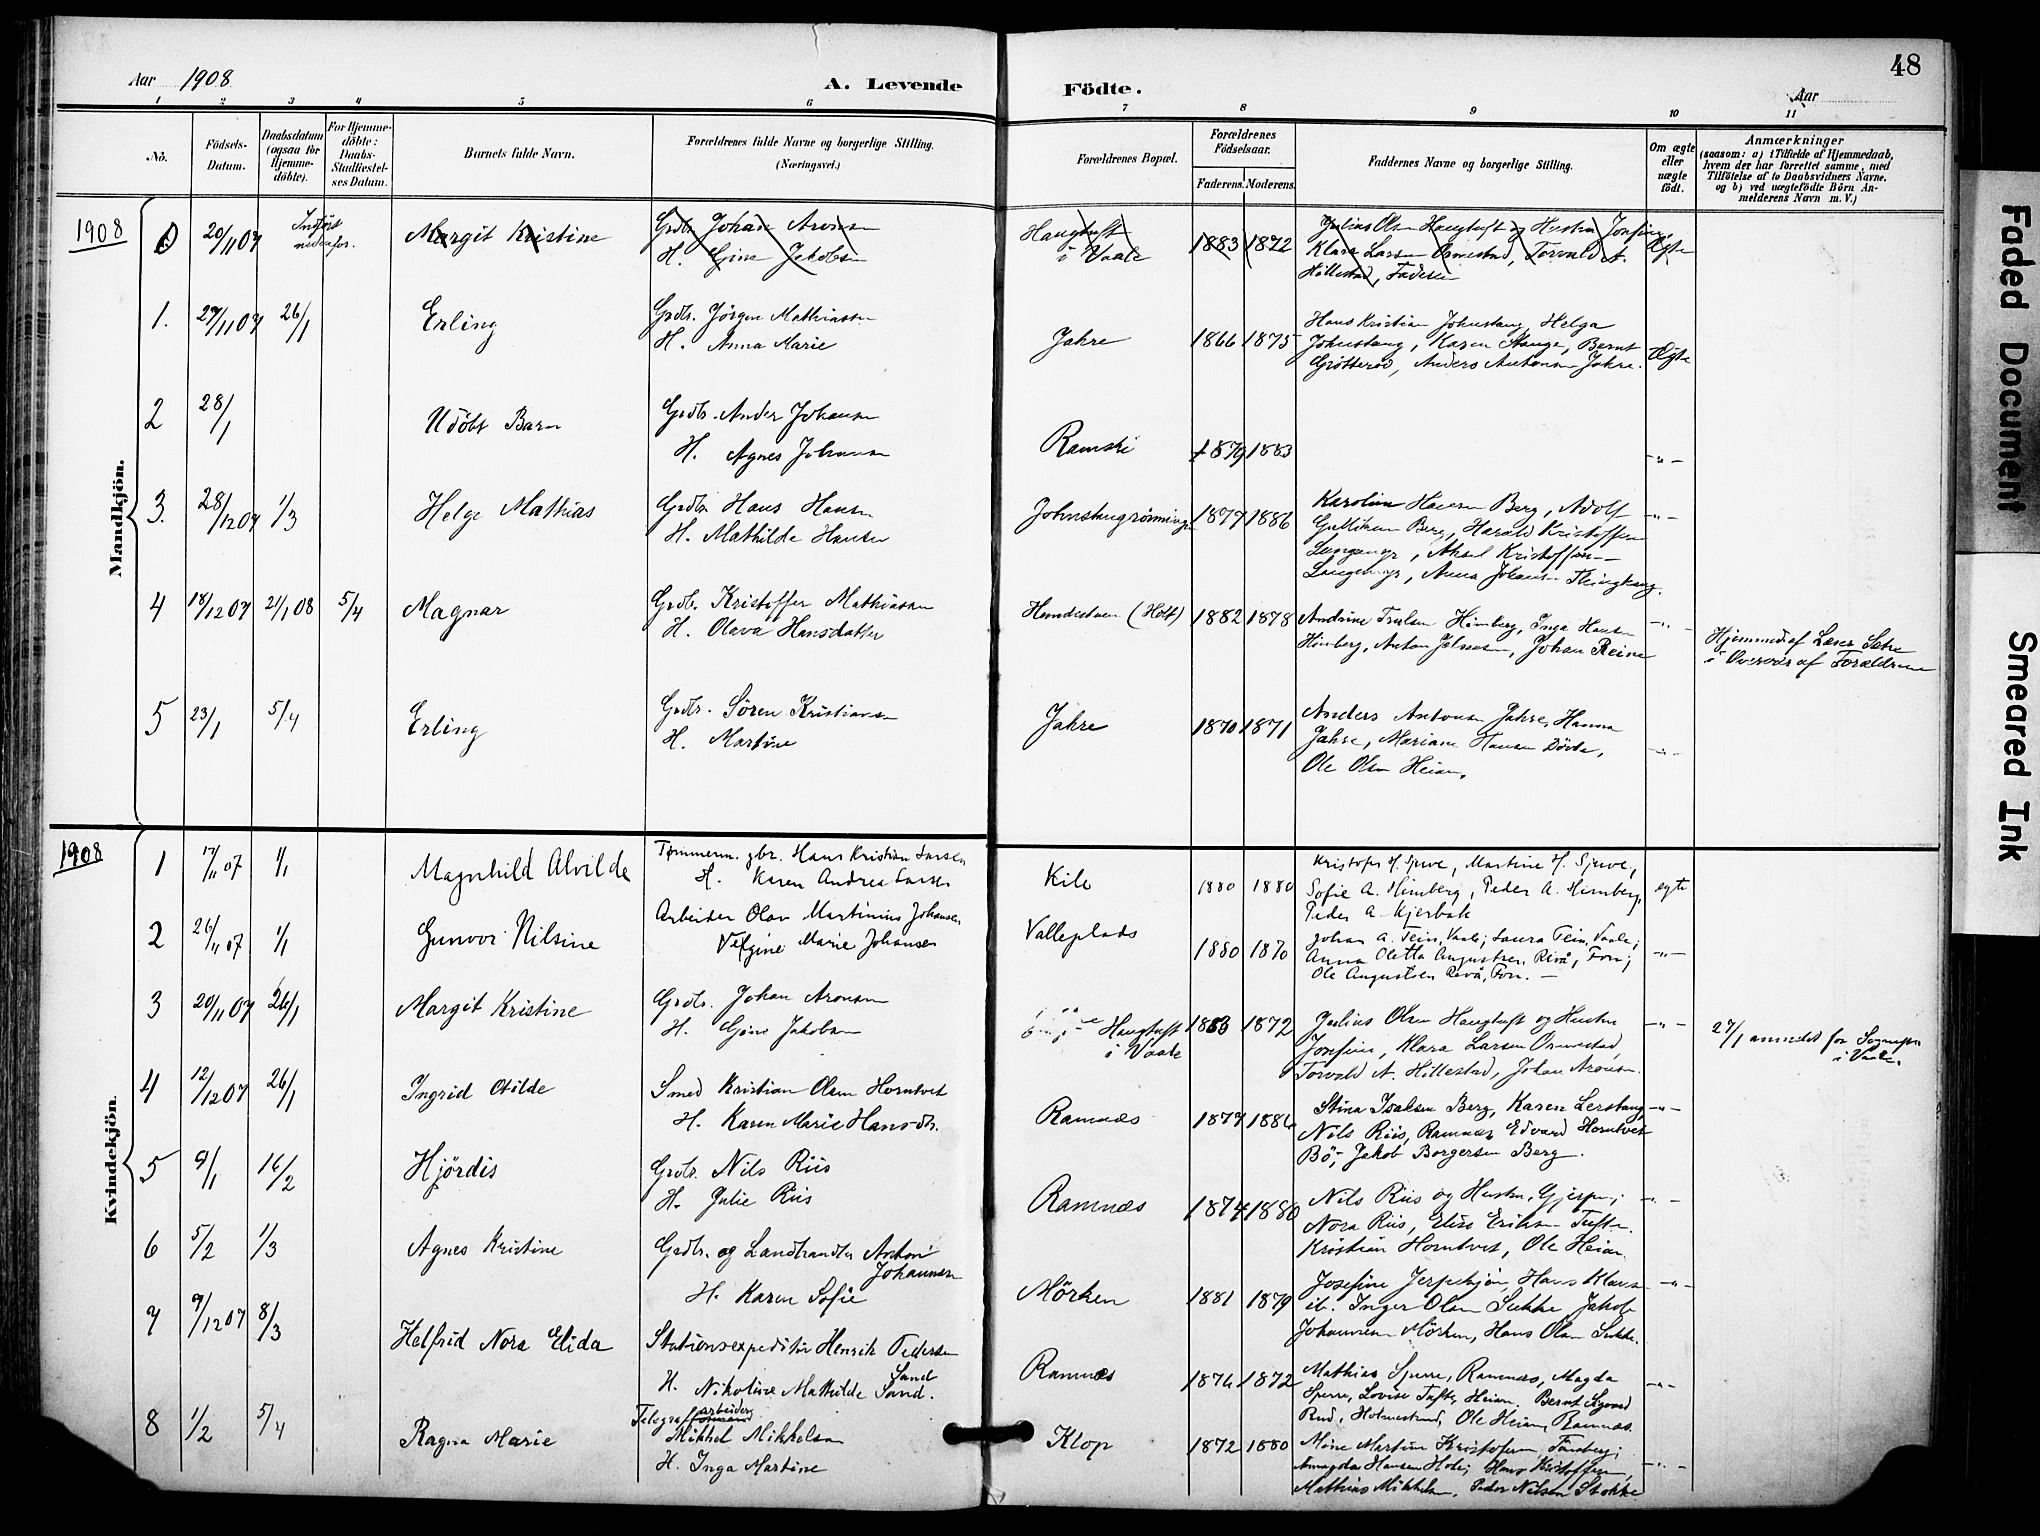 48
Aar 1908
A. Levende
Födte.
Aar
1 2 3 4 5 6 7 8 9 10 11
No.
Födsels-Datum.
Daabsdatum (ogsaa for Hjemme-döbte).
For Hjemme-döbte: Daabs-Stadfæstel-ses Datum.
Barnets fulde Navn.
Forældrenes fulde Navne og borgerlige Stilling.
(Næringsvei.)
Forældrenes Bopæl.
Forældrenes Födselsaar.
Faderens. Moderens.
Faddernes Navne og borgerlige Stilling.
Om ægte eller uægte födt.
Anmærkninger
(saasom: a) i Tilfælde af Hjemmedaab, hvem der har forrettet samme, med Tilföielse af to Daabsvidners Navne, og b) ved uægtefödte Börn An-melderens Navn m. V.)
Mandkjön.
1908
20/11 07 Indført nedenfor. Margit Kristine
Grdbr. Johan Aronsen
H. Gine Jakobsen
Haugtuft
i Vaale
1883 1872
Julius Olsen Haugtuft og Hustru Josefine,
Klara Larsen Ormestad, Torvald A.
Hillestad, Faderen
Ægte
1. 27/11 07 26/1 Erling
Grdbr. Jørgen Mathiassen
H. Anna Marie
Jahre
1866 1875
Hans Kristian Johnstang, Helga
Johnstang, Karen Stange, Bernt
Grötteröd, Anders Antonsen Jahre.
Ægte
2 28/1 Udöbt Barn
Grdbr. Anders Johansen
H. Agnes Johansen
Ramski
1879 1883
-"-
3. 28/12 07 1/3 Helge Mathias
Grdbr. Hans Hansen
H. Mathilde Hansen
Johnstangrönningen
1877 1886
Karoline Hansen Berg, Adolf
Gulliksen Berg, Harald Kristoffersen
Langemyr, Aksel Kristoffersen
Langemyr, Anna Johansen
-"-
4 18/12 07 21/1 08 5/4 Magnar
Grdbr. Kristoffer Mathiassen
H. Olava Hansdatter
(Hdt)
1882 1878
Andrine Trulsen Himberg, Inga Hansen
Himberg, Anton Johnsen, Johan Reine
-"-
Hjemmed. af Læser Sætre
i Overvær af Forældrene
5 23/1 5/4 Erling
Grdbr. Sören Kristiansen
H. Martine
Jahre
1870 1871
Anders Antonsen Jahre, Hanna
Jahre, Mariane Hansen
Ole Olsen Heian.
-"-
Kvindekjön.
1908
1 17/11 07 1/1 Magnhild Alvilde
Tømmerm. gbr. Hans Kristian Larsen
H. Karen Andrea Larsen
Kile
1880 1880
Kristofer H. Sjuve, Martine H. Sjuve,
Sofie A. Himberg, Peder A. Himberg,
Peder A. Kjerbak
egte
2 26/11 07 1/1 Gunvor Nilsine
Arbeider Olav Martinius Johansen
Marie Johansen
Valleplads
1880 1870
Johan A. Tein, Vaale; Laura Tein, Vaale;
Anna Oletta Augustsen Revå, Fon;
Ole Augustsen Revå, Fon.
-"-
3 20/11 07 26/1 Margit Kristine
Grdbr. Johan Aronsen
H. Gine Jakobsen
Haugtuft
i Vaale
1883 1872
Julius Olsen Haugtuft og Hustru
Josefine, Klara Larsen Ormestad,
Torvald A. Hillestad, Johan Aronsen.
-"-
27/1 anmeldt for Sognepr.
i Vaale.
4 12/12 07 26/1 Ingrid Otilde
Smed Kristian Olsen Horntvet
H. Karen Marie Hansdr.
Ramnæs
1877 1886
Stina Isaksen Berg, Karen Lerstang,
Nils Riis, Ramnæs, Edvard Horntvet
Bö, Jakob Borgersen Berg.
-"-
5 9/1 16/2 Hjördis
Grdbr. Nils Riis
H. Julie Riis
Ramnæs
1874 1880
Nils Riis og Hustru,
Nora Riis, Elise Eriksen Tufte.
Kristian Horntvet, Ole Heian.
-"-
6 5/2 1/3 Agnes Kristine
Grdbr. og Landhandler Anton
Johannsen
H. Karen Sofie
Mörken
1881 1879
Josefine Jerpekjön, Hans Klavs
ib. Inger Olsen Sukke, Jakob
Johannsen Mörken, Hans Olsen Sukke.
-"-
7 9/12 07 8/3 Helfrid Nora Elida
Stationsexpeditör Henrik Pedersen
Sand
H. Nikoline Mathilde Sand.
Ramnæs
1876 1872
Mathias Sperre, Ramnæs, Magda
Sperre, Lovise Tufte, Heian. Bernt Sigvard
Rud, Holmestrand, Ole Heian, Ramnæs.
-"-
8 1/2 5/4 Ragna Marie
Telegrafarbeider
Mikkel Mikkelsen
H. Inga Martine
Klop
1872 1880
Mine Martine Kristofersen, Tönsberg;
Hansen Hole; Hans Kristoffersen,
Mathias Mikkelsen, Peder Nilsen Stokke
-"-
Faded Document
Smeared Ink